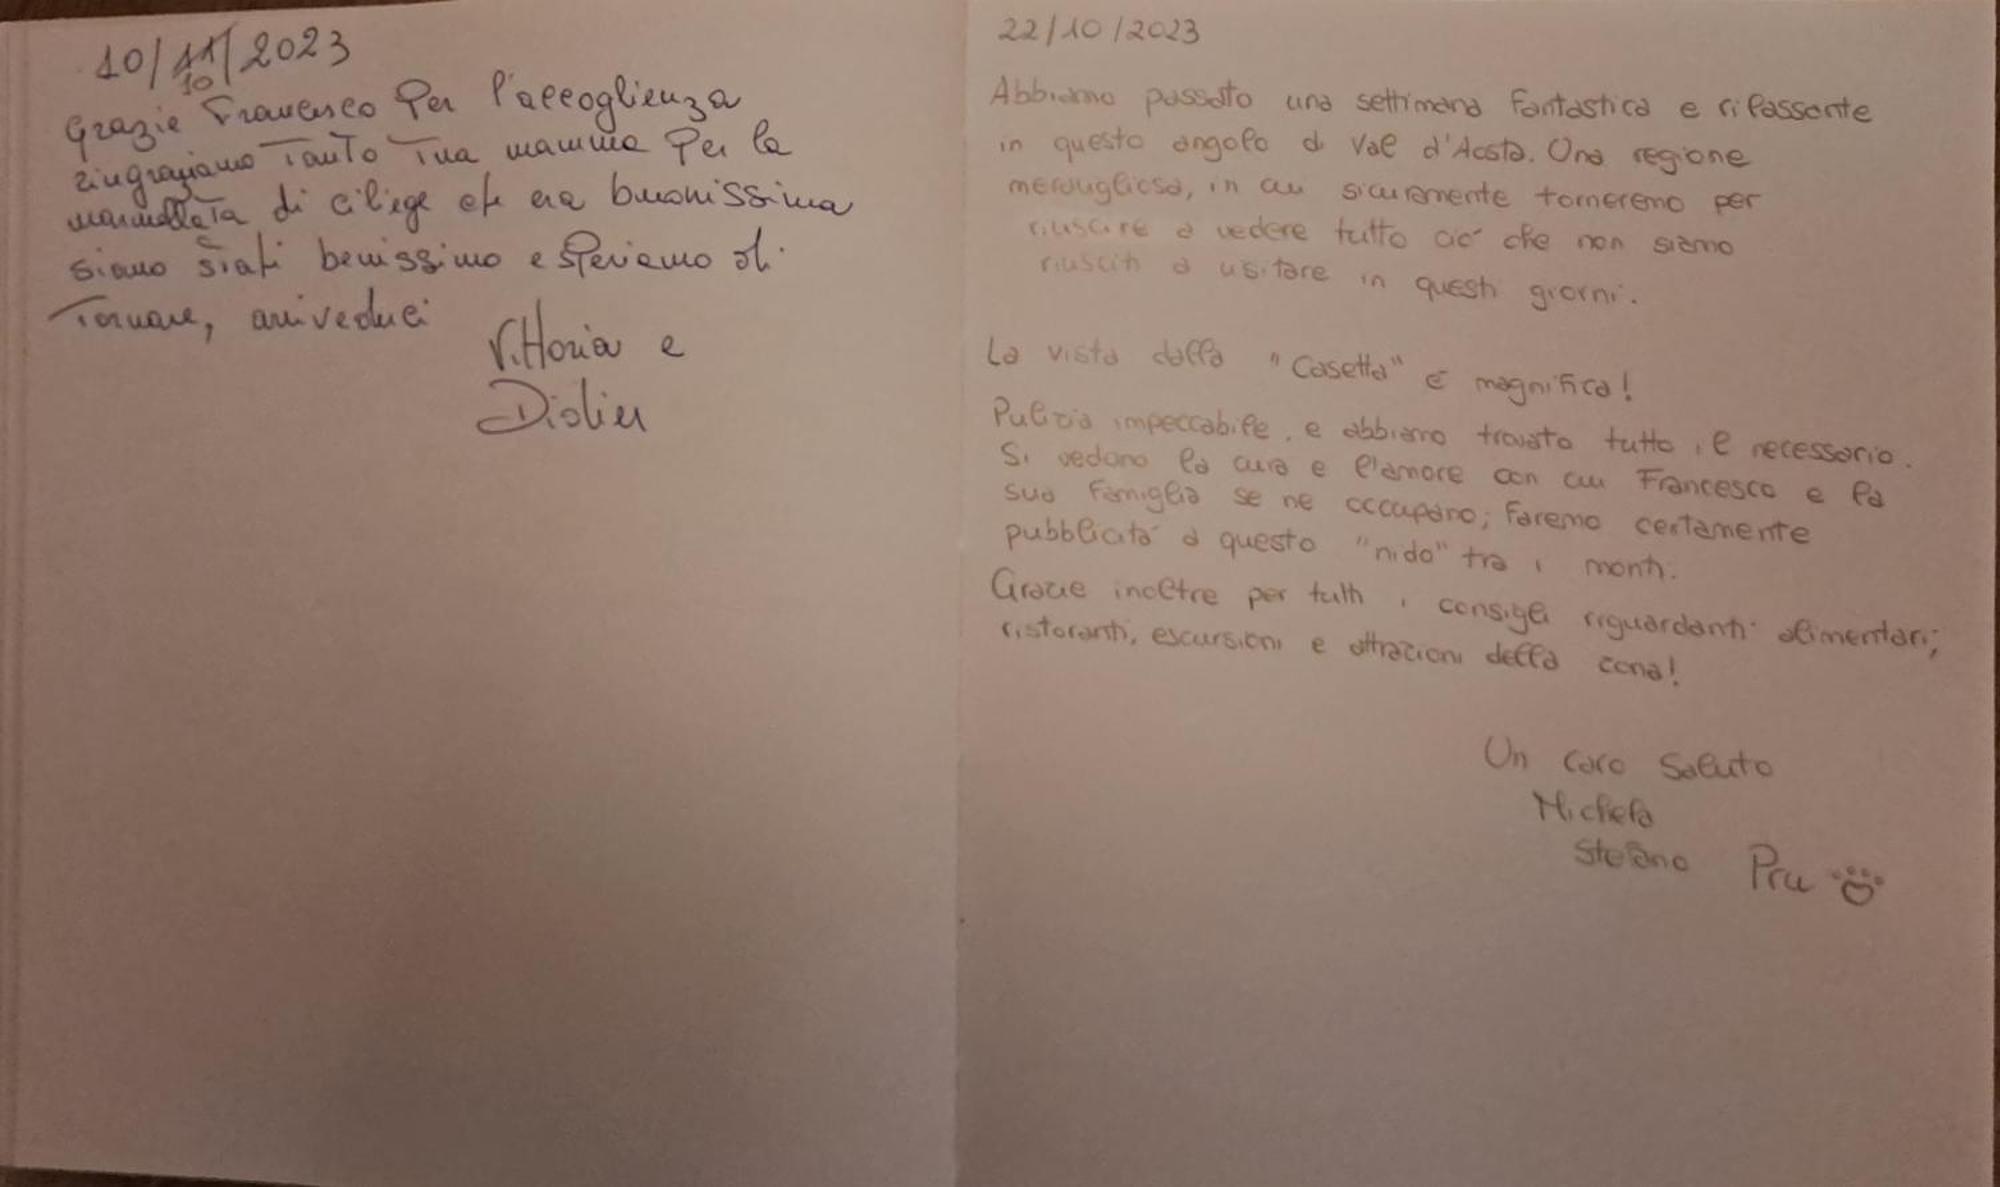 10/11/2023
10
Grazie Francesco Per l'accoglienza
ringraziamo Tanto Tua mamma Per la
marmellata di cilege che era buonissima
siamo stati benissimo e speriamo di
Tornare, arrivederci
Vittoria e
Didier
22/10/2023
Abbiamo passato una settimana fantastica e rilassante
in questo angolo di Val d'Aosta. Una regione
meravigliosa, in cui sicuramente torneremo per
riuscire a vedere tutto ciò che non siamo
riusciti a visitare in questi giorni.
La vista dalla "Casetta" è magnifica!
Pulizia impeccabile, e abbiamo trovato tutto il necessario.
Si vedono la cura e l'amore con cui Francesco e la
sua famiglia se ne occupano; faremo certamente
pubblicità a questo "nido" tra i monti.
Grazie inoltre per tutti i consigli riguardanti alimentari,
ristoranti, escursioni e attrazioni della zona!
Un caro saluto
Michela
Stefano Pru